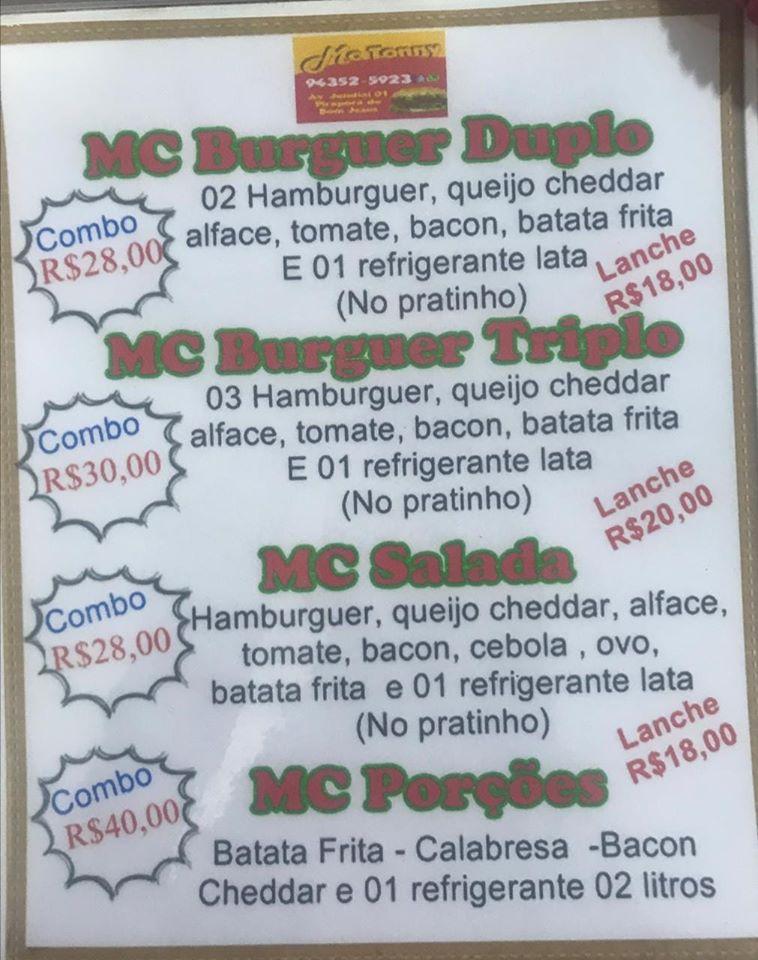 Mc Tonny
94352-5923
Av Jundiaí 01
Pirapora do
Bom Jesus
MC Burguer Duplo
Combo
R$28,00
02 Hamburguer, queijo cheddar
alface, tomate, bacon, batata frita
E 01 refrigerante lata
(No pratinho)
Lanche
R$18,00
MC Burguer Triplo
Combo
R$30,00
03 Hamburguer, queijo cheddar
alface, tomate, bacon, batata frita
E 01 refrigerante lata
(No pratinho)
Lanche
R$20,00
MC Salada
Combo
R$28,00
Hamburguer, queijo cheddar, alface,
tomate, bacon, cebola , ovo,
batata frita e 01 refrigerante lata
(No pratinho)
Lanche
R$18,00
MC Porções
Combo
R$40,00
Batata Frita - Calabresa -Bacon
Cheddar e 01 refrigerante 02 litros